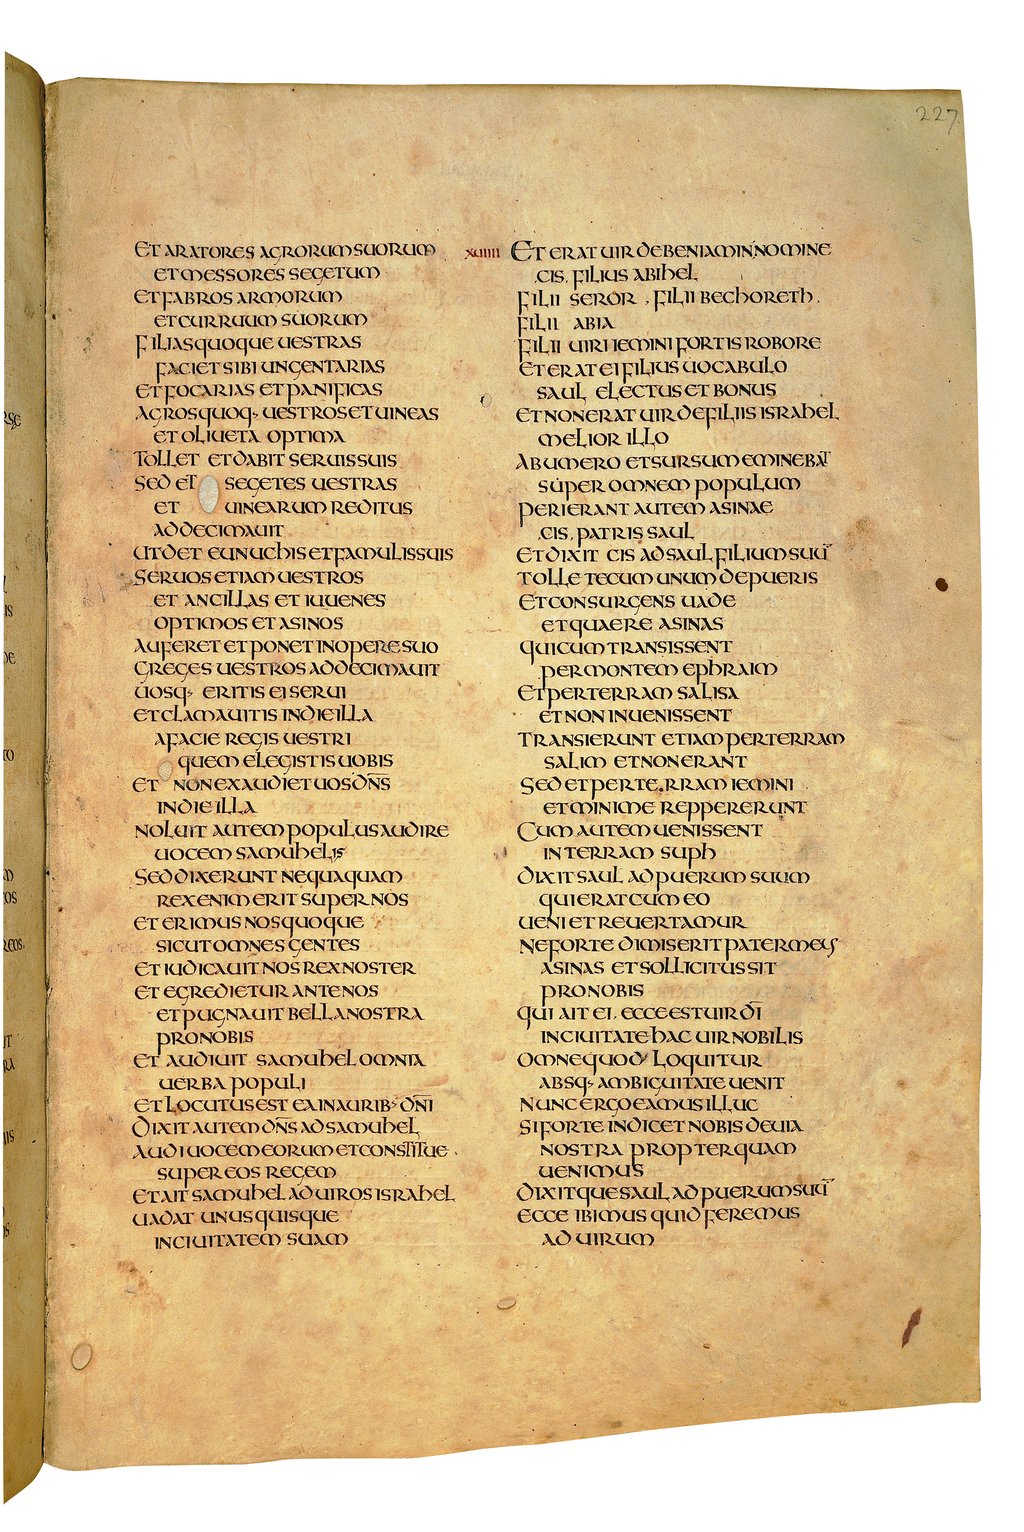 227
ET ARATORES AGRORUM SUORUM
ET MESSORES SEGETUM
ET FABROS ARMORUM
ET CURRUUM SUORUM
FILIAS QUOQUE UESTRAS
FACIET SIBI UNGENTARIAS
ET FOCARIAS ET PANIFICAS
AGROS QUOQ· UESTROS ET UINEAS
ET OLIUETA OPTIMA
TOLLET ET DABIT SERUIS SUIS
SED ET SEGETES UESTRAS
ET UINEARUM REDITUS
ADDECIMAUIT
UT DET EUNUCHIS ET FAMULIS SUIS
SERUOS ETIAM UESTROS
ET ANCILLAS ET IUUENES
OPTIMOS ET ASINOS
AUFERET ET PONET IN OPERE SUO
GREGES UESTROS ADDECIMAUIT
UOSQ· ERITIS EI SERUI
ET CLAMAUITIS IN DIE ILLA
A FACIE REGIS UESTRI
QUEM ELEGISTIS UOBIS
ET NON EXAUDIET UOS DN̄S
IN DIE ILLA
NOLUIT AUTEM POPULUS AUDIRE
UOCEM SAMUHELIS
SED DIXERUNT NEQUAQUAM
REX ENIM ERIT SUPER NOS
ET ERIMUS NOS QUOQUE
SICUT OMNES GENTES
ET IUDICAUIT NOS REX NOSTER
ET EGREDIETUR ANTE NOS
ET PUGNAUIT BELLA NOSTRA
PRO NOBIS
ET AUDIUIT SAMUHEL OMNIA
UERBA POPULI
ET LOCUTUS EST EA IN AURIB· DN̄I
DIXIT AUTEM DN̄S AD SAMUHEL
AUDI UOCEM EORUM ET CONSTITUE
SUPER EOS REGEM
ET AIT SAMUHEL AD UIROS ISRAHEL
UADAT UNUSQUISQUE
IN CIUITATEM SUAM
XUIIII ET ERAT UIR DE BENIAMIN, NOMINE
CIS, FILIUS ABIHEL
FILII SEROR, FILII BECHORETH.
FILII ABIA
FILII UIRI IEMINI FORTIS ROBORE
ET ERAT EI FILIUS UOCABULO
SAUL ELECTUS ET BONUS
ET NON ERAT UIR DE FILIIS ISRAHEL
MELIOR ILLO
AB UMERO ET SURSUM EMINEBAT
SUPER OMNEM POPULUM
PERIERANT AUTEM ASINAE
CIS, PATRIS SAUL
ET DIXIT CIS AD SAUL FILIUM SUŪ
TOLLE TECUM UNUM DE PUERIS
ET CONSURGENS UADE
ET QUAERE ASINAS
QUI CUM TRANSISSENT
PER MONTEM EPHRAIM
ET PER TERRAM SALISA
ET NON INUENISSENT
TRANSIERUNT ETIAM PER TERRAM
SALIM ET NON ERANT
SED ET PER TERRAM IEMINI
ET MINIME REPPERERUNT
CUM AUTEM UENISSENT
IN TERRAM SUPH
DIXIT SAUL AD PUERUM SUUM
QUI ERAT CUM EO
UENI ET REUERTAMUR
NE FORTE DIMISERIT PATER MEUS
ASINAS ET SOLLICITUS SIT
PRO NOBIS
QUI AIT EI, ECCE EST UIR DĪ
IN CIUITATE HAC UIR NOBILIS
OMNE QUOD LOQUITUR
ABSQ· AMBIGUITATE UENIT
NUNC ERGO EAMUS ILLUC
SI FORTE INDICET NOBIS DE UIA
NOSTRA PROPTER QUAM
UENIMUS
DIXITQUE SAUL AD PUERUM SUŪ
ECCE IBIMUS QUID FEREMUS
AD UIRUM